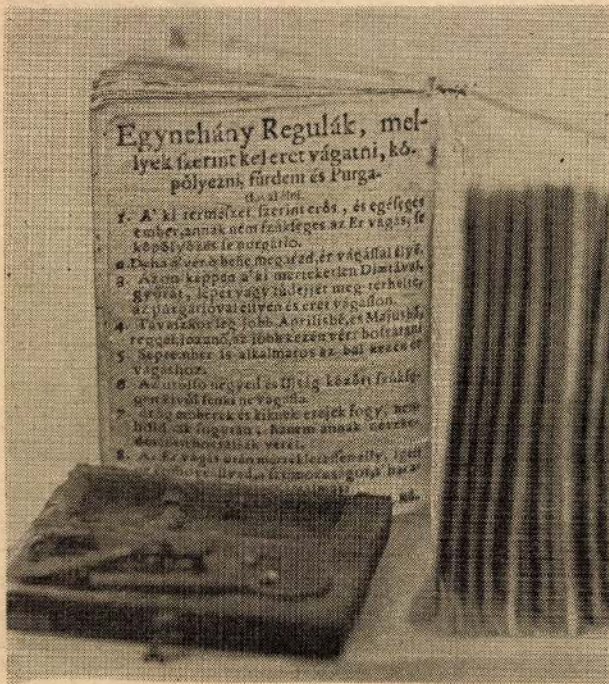 Egynehány Regulák, mel-
lyek szerint kel eret vágatni, kö-
pölyezni, fürdeni és Purga-
1. A' ki termeszet szerint erös, és egéséges
ember, annak nem szükseges az Er vagás, se
köpölyözés se purgátio.
2. De ha a' ver a' beñe meg ér vágással élyē.
3. Azon keppen a' ki mertekletlen Diætával,
gyomrát, lépét vagy tüdejét meg-terhelte,
az purgatioval ellyen és eret vagasson.
4. Tavaszkor leg jobb Aprilisbē, és Majusbā,
reggel jozanō, az jobb kezen vért botsatani
5. September is alkalmatos az bal kezen ér
vágashoz.
6. Az utolso negyed es Uj ság között szüksé-
gen kivül senki ne vágasson
7. emberek és kiknek erejek fogy, nem
hóld fogytán, hanem annak
verét.
8. Az Er vágás után